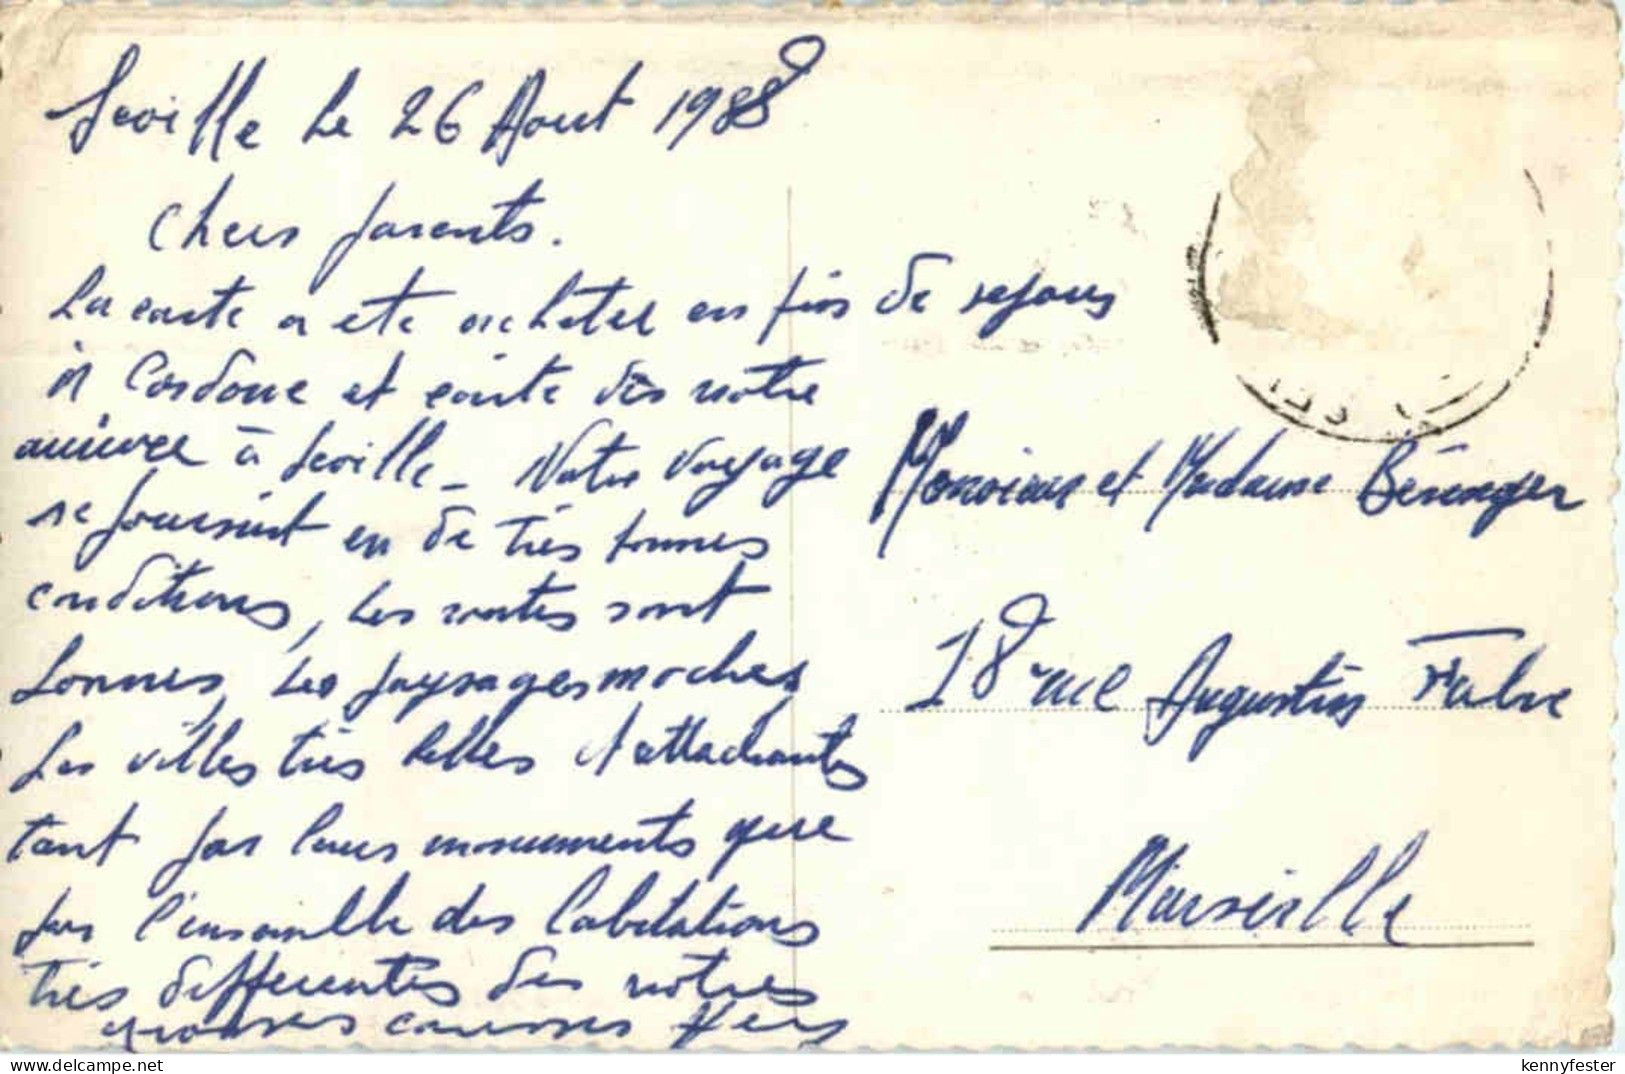 Seville le 26 Aout 1988
Chers parents.
La carte a ete acheter en fin de sejour
à Cordoue et écrite dès notre
arrivée à Seville - Notre voyage
se poursuit en de très bonnes
conditions, les routes sont
bonnes, les paysages moches,
les villes très belles et attachantes
tant par leurs monuments que
par l'ensemble des habitations
très differentes des notres
grosses caresses
Monsieur et Madame Bérenger
18 rue Augustin Fabre
Marseille
delcampe.net
kennyfester